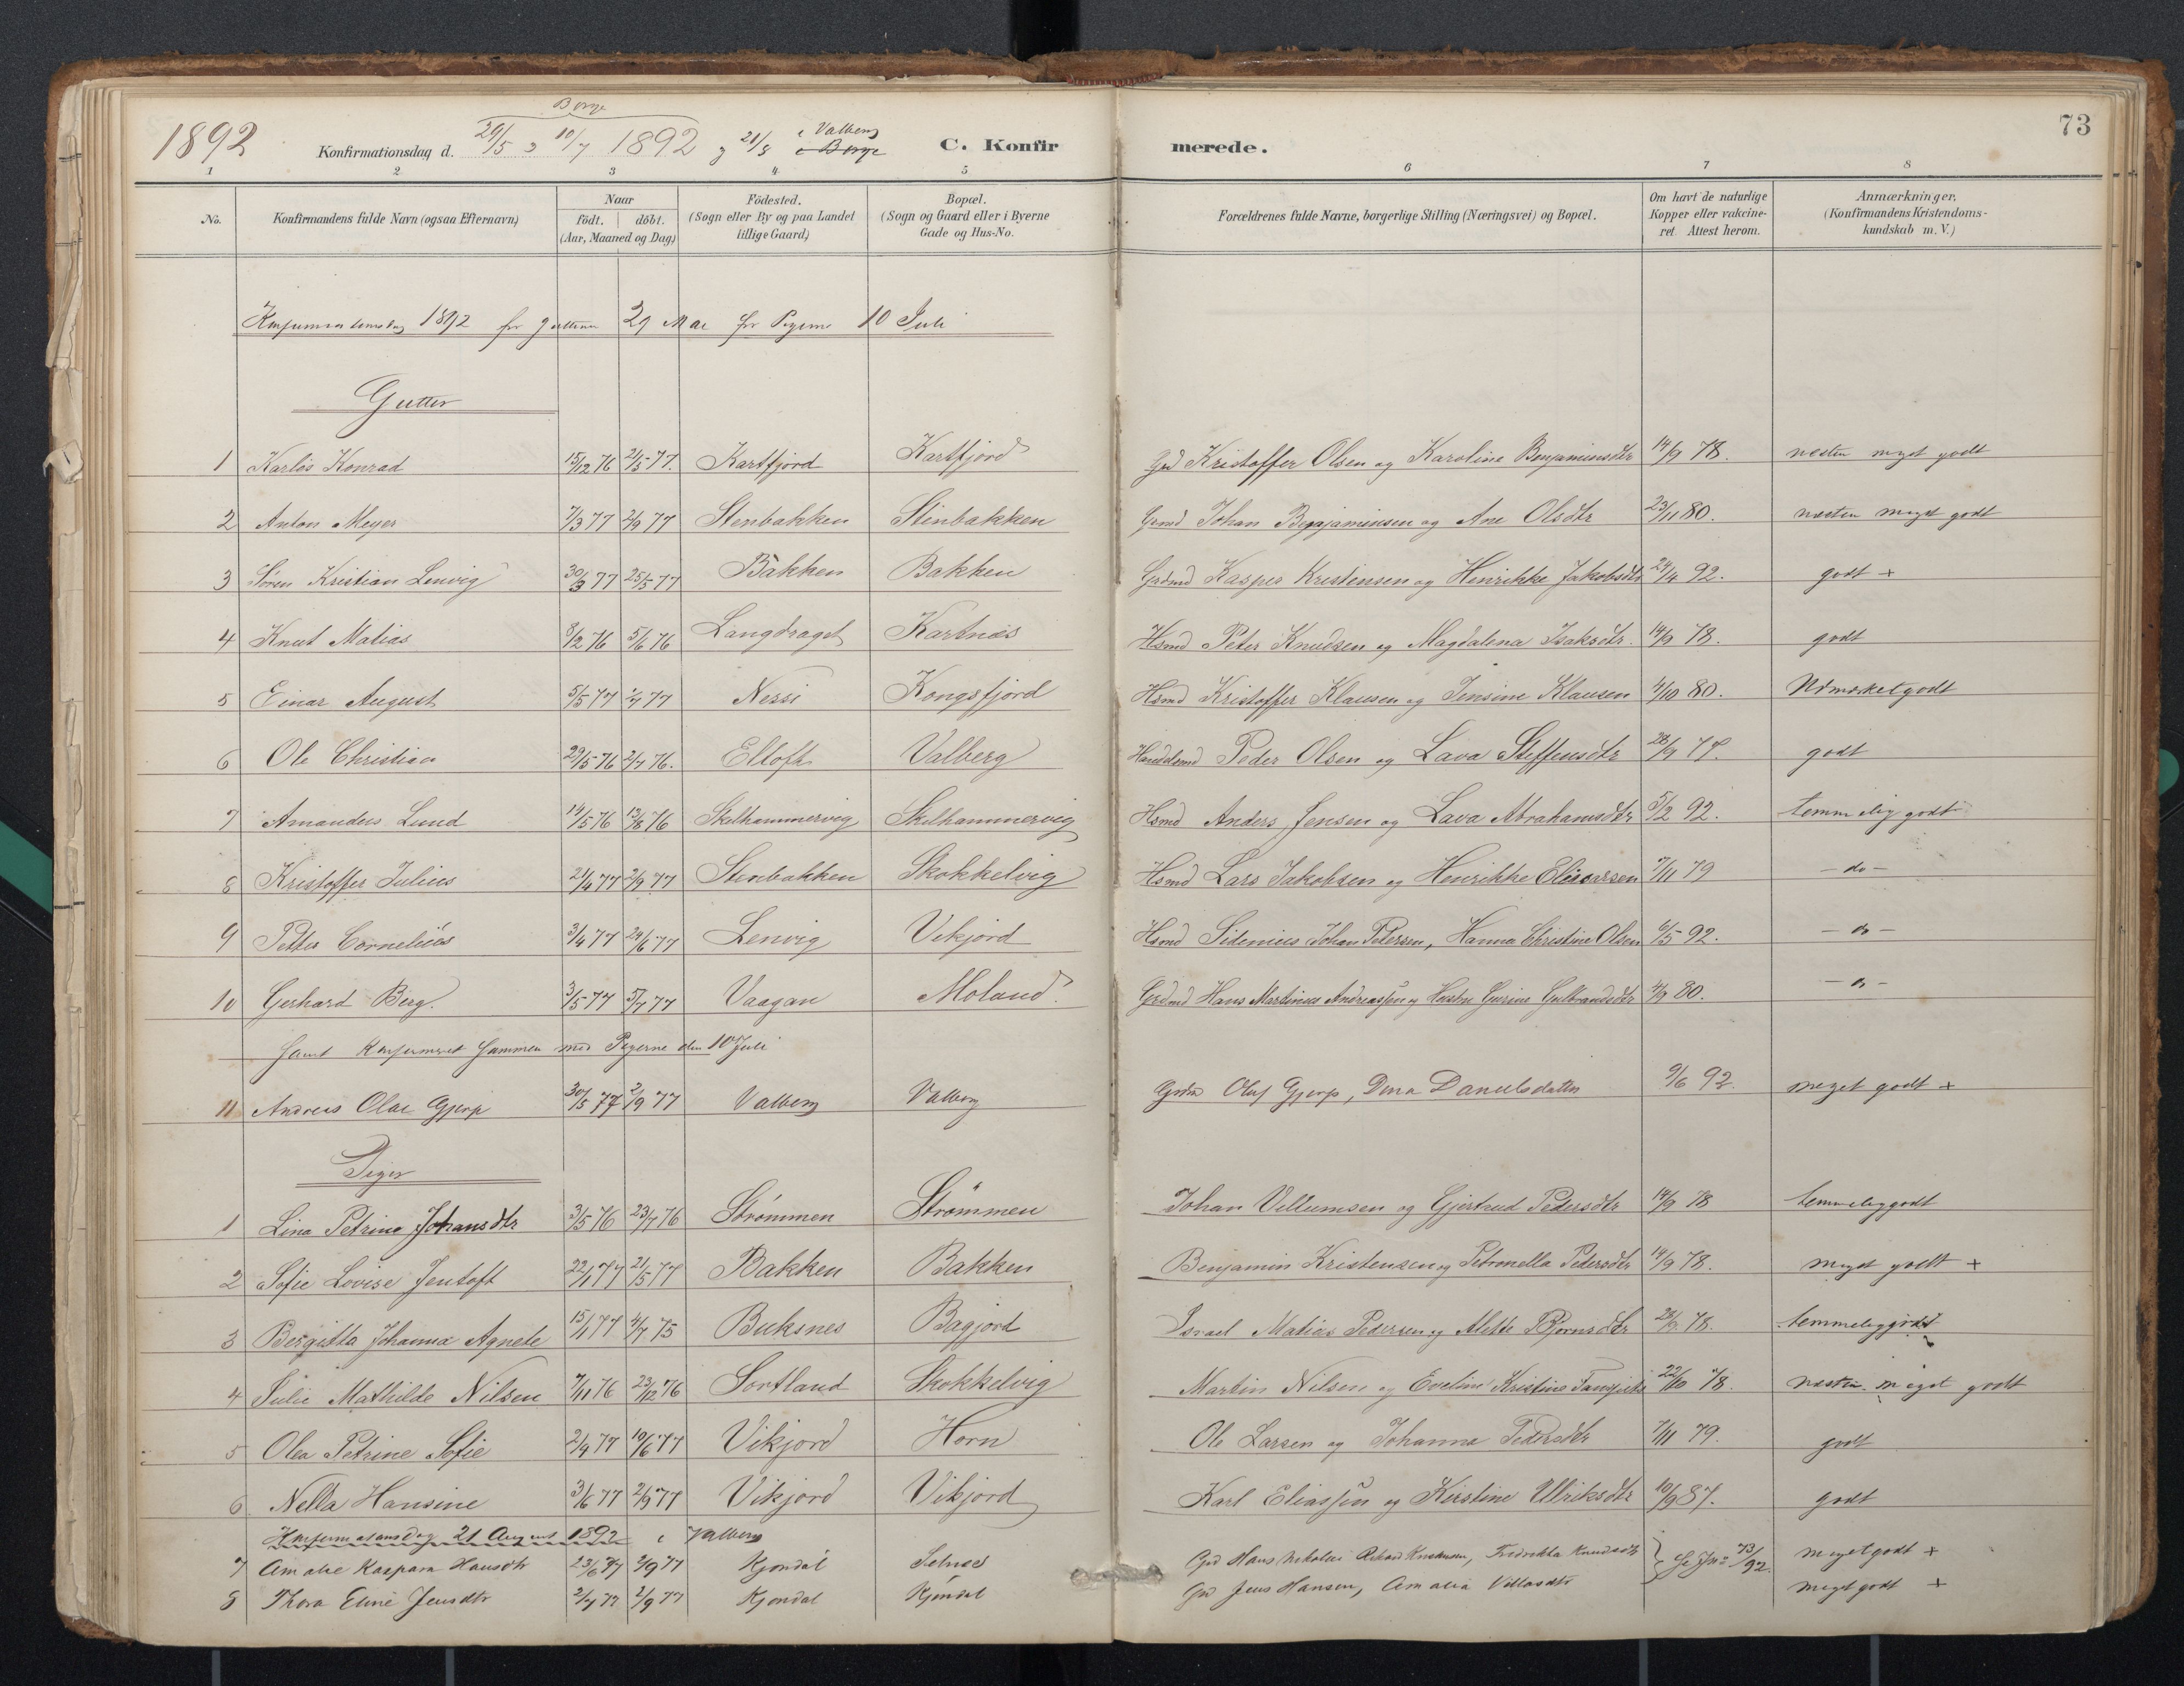 73
Borge
1892 Konfirmationsdag d. 29/5 & 10/7 1892 og 21/8 i Valberg i Borge C. Konfirmerede.
1 2 3 4 5 6 7 8
No. Konfirmandens fulde Navn (ogsaa Efternavn) Naar födt. döbt. (Aar, Maaned og Dag) Födested. (Sogn eller By og paa Landet tillige Gaard) Bopæl. (Sogn og Gaard eller i Byerne Gade og Hus-No. Forældrenes fulde Navne, borgerlige Stilling (Næringsvei) og Bopæl. Om havt de naturlige Kopper eller vakcineret. Attest herom. Anmærkninger. (Konfirmandens Kristendomskundskab m. V.)
Konfirmationsdag 1892 for gutterne 29 Mai for Pigerne 10 Juli
Gutter
1 Karlös Konrad 15/12 76 21/5 77. Kartfjord Kartfjord Grd Kristoffer Olsen og Karoline Benjaminsdtr 14/9 78. nesten meget godt
2 Anton Meyer 7/3 77 2/9 77 Stenbakken Stenbakken Grmd Johan Benjaminsen og Ane Olsdtr 23/11 80. næsten meget godt
3 Sören Kristian Lenvig 30/3 77 25/5 77 Bakken Bakken Grdmd Kasper Kristensen og Henrikke Jakobsdtr 24/4 92. godt +
4 Knut Matias 8/2 76 5/6 76 Langdraget Kartnæs Hsmd Peter Knudsen og Magdalena Isaksdtr. 14/9 78. godt
5 Einar August 5/5 77 1/7 77 Nessi Kongsfjord Hsmd Kristoffer Klausen og Jensine Klausen 4/10 80. Udmærket godt
6 Ole Christian 29/5 76 2/7 76. Eltoft Valberg Handelsmd Peder Olsen og Lava Steffensdtr 28/9 77. godt
7 Amandus Lund 14/5 76 13/8 76 Skelhammervig Skelhammervig Hsmd Anders Jensen og Lava Abrahamsdtr 5/2 92. temmelig godt
8 Kristoffer Julius 21/4 77 2/9 77 Stenbakken Skokkelvig Hsmd Lars Jakobsen og Henrikke Elisarsen 7/11 79 - do -
9 Petter Cornelius 3/4 77 24/6 77 Lenvig Vikjord Hsmd Sidenius Johan Petersen, Hanna Christine Olsen 6/5 92. - do -
10 Gerhard Berg. 3/5 77 5/7 77 Vaagan Moland. Grdmd Hans Martinus Andreassen og Hustru Gurine Gulbrandsdtr 4/9 80. - do -
Samt Konfirmeret Sammen med Pigerne den 10 Juli
11 Andreas Olai Gjerp 30/5 77 2/9 77 Valberg Valberg Grdm Oluf Gjerp, Dina Danielsdatter 9/6 92. meget godt +
Piger
1 Lina Petrine Johansdtr 3/5 76 23/7 76 Strömmen Strömmen Johan Villumsen og Gjertrud Pedersdtr 14/9 78 temmeliggodt
2 Sofie Lovise Jentoft 22/1 77 21/5 77 Bakken Bakken Benjamin Kristensen og Petronella Pedersdtr 14/9 78. meget godt +
3 Bergitta Johanna Agnete 15/1 77 4/7 75 Buksnes Bagjord Israel Matias Pedersen og Alette Bjornsdtr 28/9 78. temmeliggodt
4 Julie Mathilde Nilsen 7/11 76 23/12 76 Sortland Skokkelvig Martin Nilsen og Eveline Kristine 22/10 78. næsten meget godt
5 Olea Petrine Sofie 2/4 77 10/6 77 Vikjord Horn Ole Larsen og Johanna Pedersdtr 7/11 79. godt
6 Nella Hansine 3/6 77 2/9 77 Vikjord Vikjord Karl Eliassen og Kirstine Ulriksdtr 10/9 87. godt
Konfirmationsdag 21 August 1892 i Valberg
7 Amalie Kaspara Hansdtr 23/6 77 2/9 77 Kjøndal Selnes Grd Hans Nikolai Rikard Kristensen, Fredrikka Knudsdtr 73/92. meget godt +
8 Thora Eline Jensdtr 2/7 77 2/9 77 Kjøndal Kjøndal Grd Jens Hansen, Amalia Villasdtr meget godt +